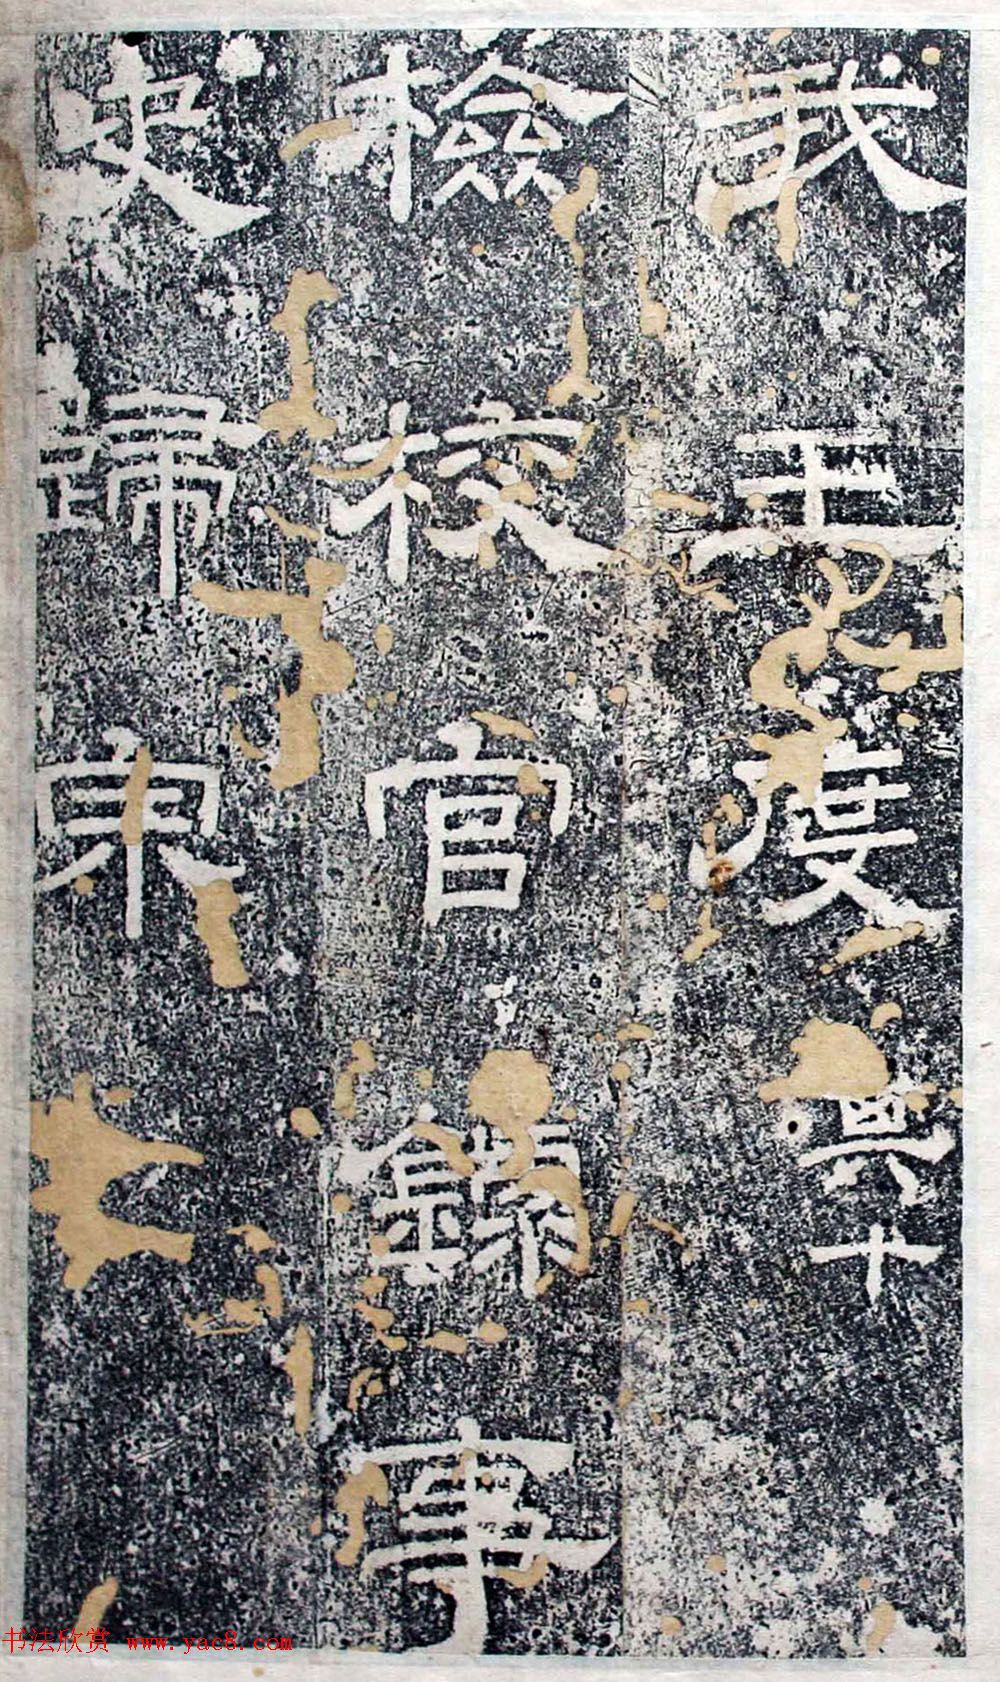 我王度十
檢校官錄事
史歸宋
书法欣赏 www.yac8.com